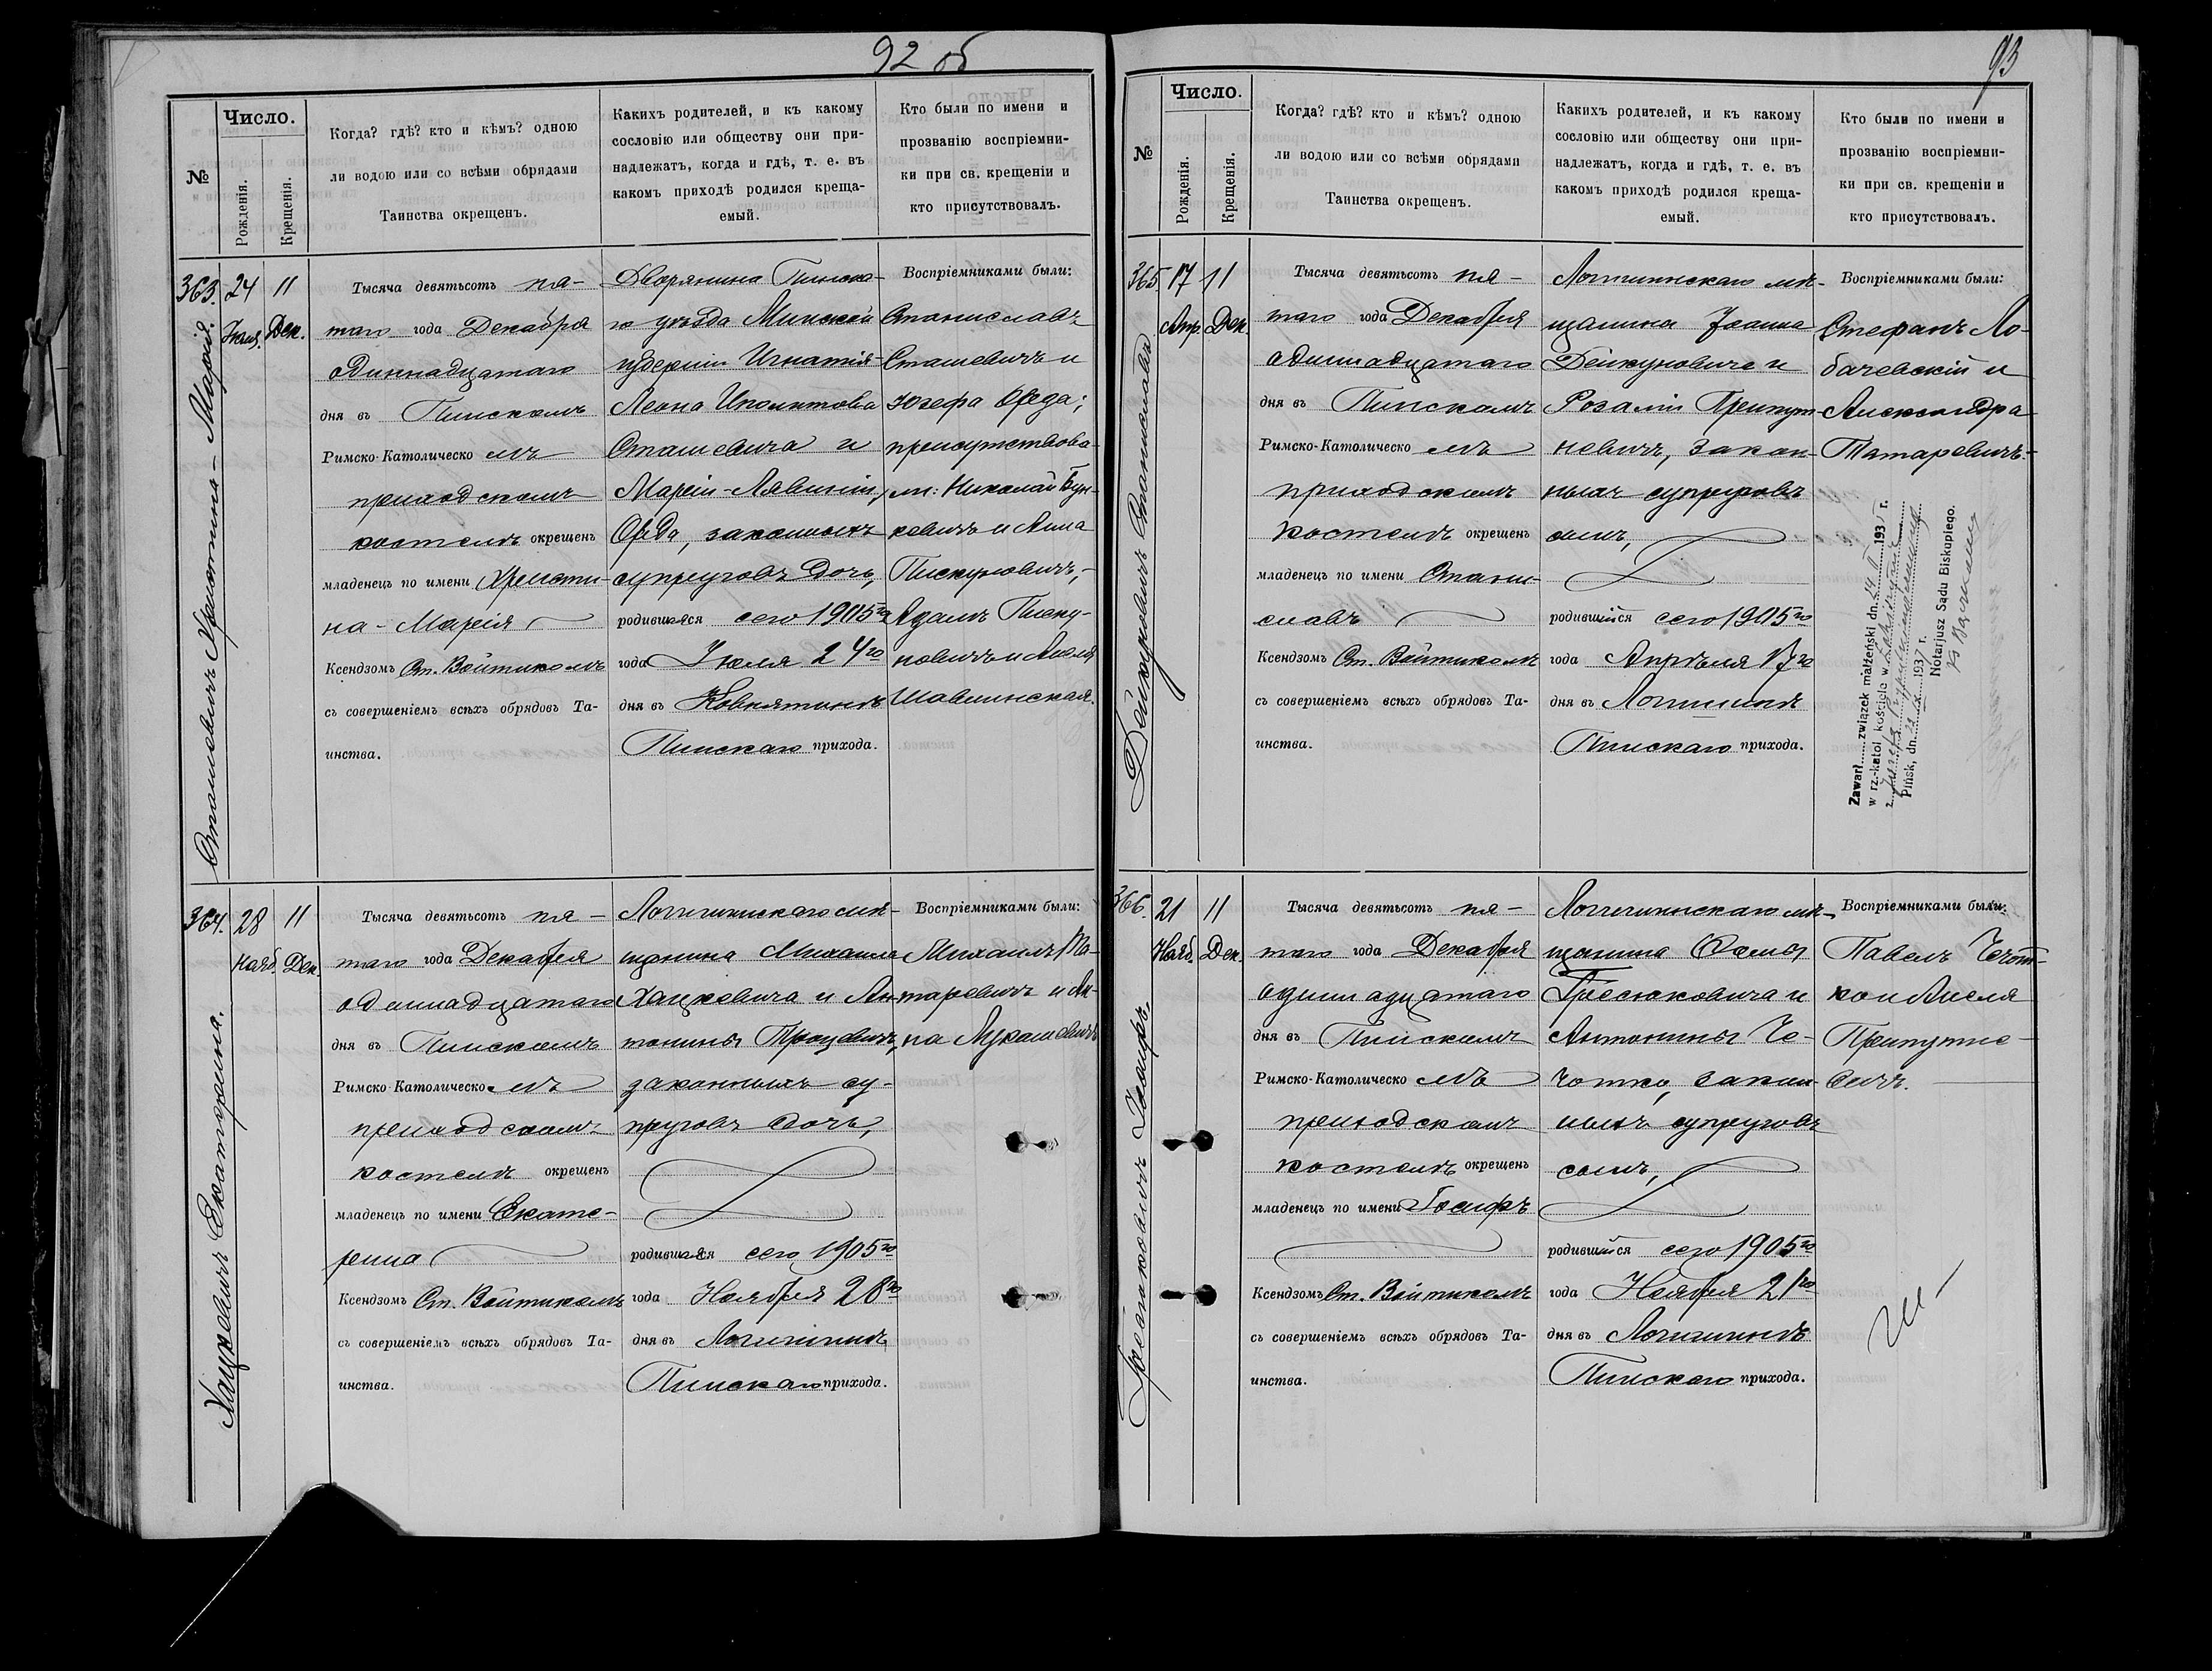 92 об
№
Число.
Рожденія.
Крещенія.
Когда? гдѣ? кто и кѣмъ? одною
ли водою или со всѣми обрядами
Таинства окрещенъ.
Какихъ родителей, и къ какому
сословію или обществу они при-
надлежатъ, когда и гдѣ, т. е. въ
какомъ приходѣ родился креща-
емый.
Кто были по имени и
прозванію воспріемни-
ки при св. крещеніи и
кто присутствовалъ.
363.
24
Іюля.
11
Дек.
Сташевичъ Христина-Марія.
Тысяча девятьсотъ пя-
таго года Декабря
одиннадцатаго
дня въ Пинскомъ
Римско-Католическомъ
приходскомъ
костелѣ окрещенъ
младенецъ по имени Христи-
на-Марія
Ксендзомъ Ст. Войтикомъ
съ совершеніемъ всѣхъ обрядовъ Та-
инства.
Дворянина Пинска-
го уѣзда Минской
губерніи Игнатія-
Леона Иполитова
Сташевича и
Маріи-
Орда, законныхъ
супруговъ дочь,
родившаяся сего 1905го
года Іюля 24го
дня въ Ковнятинѣ
Пинскаго прихода.
Воспріемниками были:
Станиславъ
Сташевичъ и
Юзефа Орда;
присутствова-
ли: Николай Бун-
кевичъ и Анна
Пискуновичъ,
Адамъ Писку-
новичъ и Анеля
Шавлинская.
364.
28
Нояб.
11
Дек.
Хацкевичъ Екатерина.
Тысяча девятьсотъ пя-
таго года Декабря
одиннадцатаго
дня въ Пинскомъ
Римско-Католическомъ
приходскомъ
костелѣ окрещенъ
младенецъ по имени Екате-
рина
Ксендзомъ Ст. Войтикомъ
съ совершеніемъ всѣхъ обрядовъ Та-
инства.
Логишинскаго мѣ-
щанина Михаила
Хацкевича и Ан-
тонины Троцевичъ,
законныхъ су-
пруговъ дочь,
родившаяся сего 1905го
года Ноября 28го
дня въ Логишинѣ
Пинскаго прихода.
Воспріемниками были:
Михаилъ Та-
таревичъ и Ан-
на Лукашевичъ
93
№
Число.
Рожденія.
Крещенія.
Когда? гдѣ? кто и кѣмъ? одною
ли водою или со всѣми обрядами
Таинства окрещенъ.
Какихъ родителей, и къ какому
сословію или обществу они при-
надлежатъ, когда и гдѣ, т. е. въ
какомъ приходѣ родился креща-
емый.
Кто были по имени и
прозванію воспріемни-
ки при св. крещеніи и
кто присутствовалъ.
365.
17
Апр.
11
Дек.
Дейкуновичъ Станиславъ
Тысяча девятьсотъ пя-
таго года Декабря
одиннадцатаго
дня въ Пинскомъ
Римско-Католическомъ
приходскомъ
костелѣ окрещенъ
младенецъ по имени Стани-
славъ
Ксендзомъ Ст. Войтикомъ
съ совершеніемъ всѣхъ обрядовъ Та-
инства.
Логишинскаго мѣ-
щанина Іоанна
Дейкуновича и
Розаліи Припут-
невичъ, закон-
ныхъ супруговъ
сынъ,
родившійся сего 1905го
года Апрѣля 17го
дня въ Логишинѣ
Пинскаго прихода.
Воспріемниками были:
Стефанъ Ло-
бачевскій и
Александра
Татаревичъ.
Zawarł związek małżeński dn. 193 r.
w rz.-katol. kościele w
z
Pińsk, dn. 1937 r.
Notarjusz Sądu Biskupiego.
366.
21
Нояб.
11
Дек.
Іосифъ.
Тысяча девятьсотъ пя-
таго года Декабря
одиннадцатаго
дня въ Пинскомъ
Римско-Католическомъ
приходскомъ
костелѣ окрещенъ
младенецъ по имени Іосифъ
Ксендзомъ Ст. Войтикомъ
съ совершеніемъ всѣхъ обрядовъ Та-
инства.
Логишинскаго мѣ-
щанина Ѳомы
и
Антонины Че-
чотко, закон-
ныхъ супруговъ
сынъ,
родившійся сего 1905го
года Ноября 21го
дня въ Логишинѣ
Пинскаго прихода.
Воспріемниками были:
Павелъ Чечот-
ко и Анеля
Припутне-
вичъ.